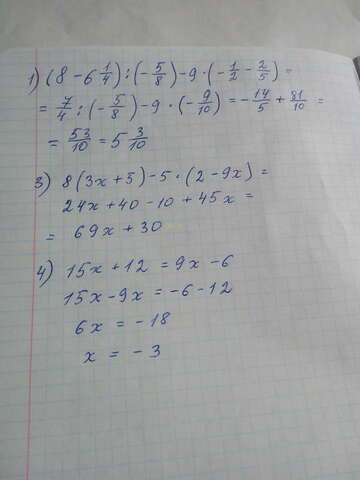 1) (8 - 6 1/4) : (- 5/8) - 9 · (- 1/2 - 2/5) =
= 7/4 : (- 5/8) - 9 · (- 9/10) = - 14/5 + 81/10 =
= 53/10 = 5 3/10
3) 8(3x + 5) - 5 · (2 - 9x) =
24x + 40 - 10 + 45x =
= 69x + 30
4) 15x + 12 = 9x - 6
15x - 9x = -6 - 12
6x = -18
x = -3